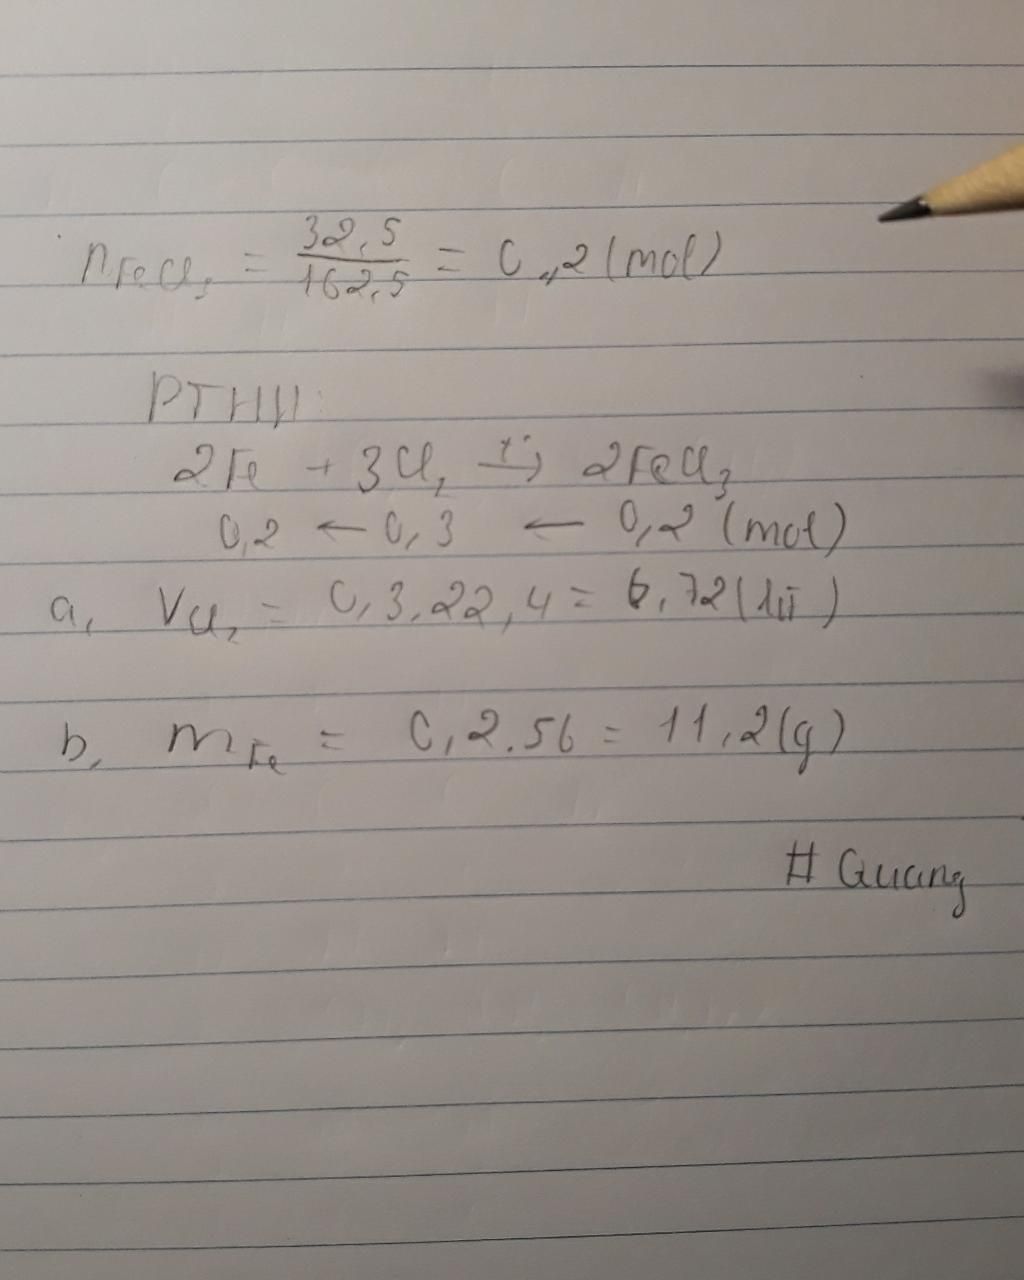 nFeCl₃ = 32,5/162,5 = 0,2 (mol)
PTHH:
2Fe + 3Cl₂ →(t°) 2FeCl₃
0,2 ← 0,3 ← 0,2 (mol)
a, VCl₂ = 0,3.22,4 = 6,72 (lít)
b, mFe = 0,2.56 = 11,2 (g)
# Quang